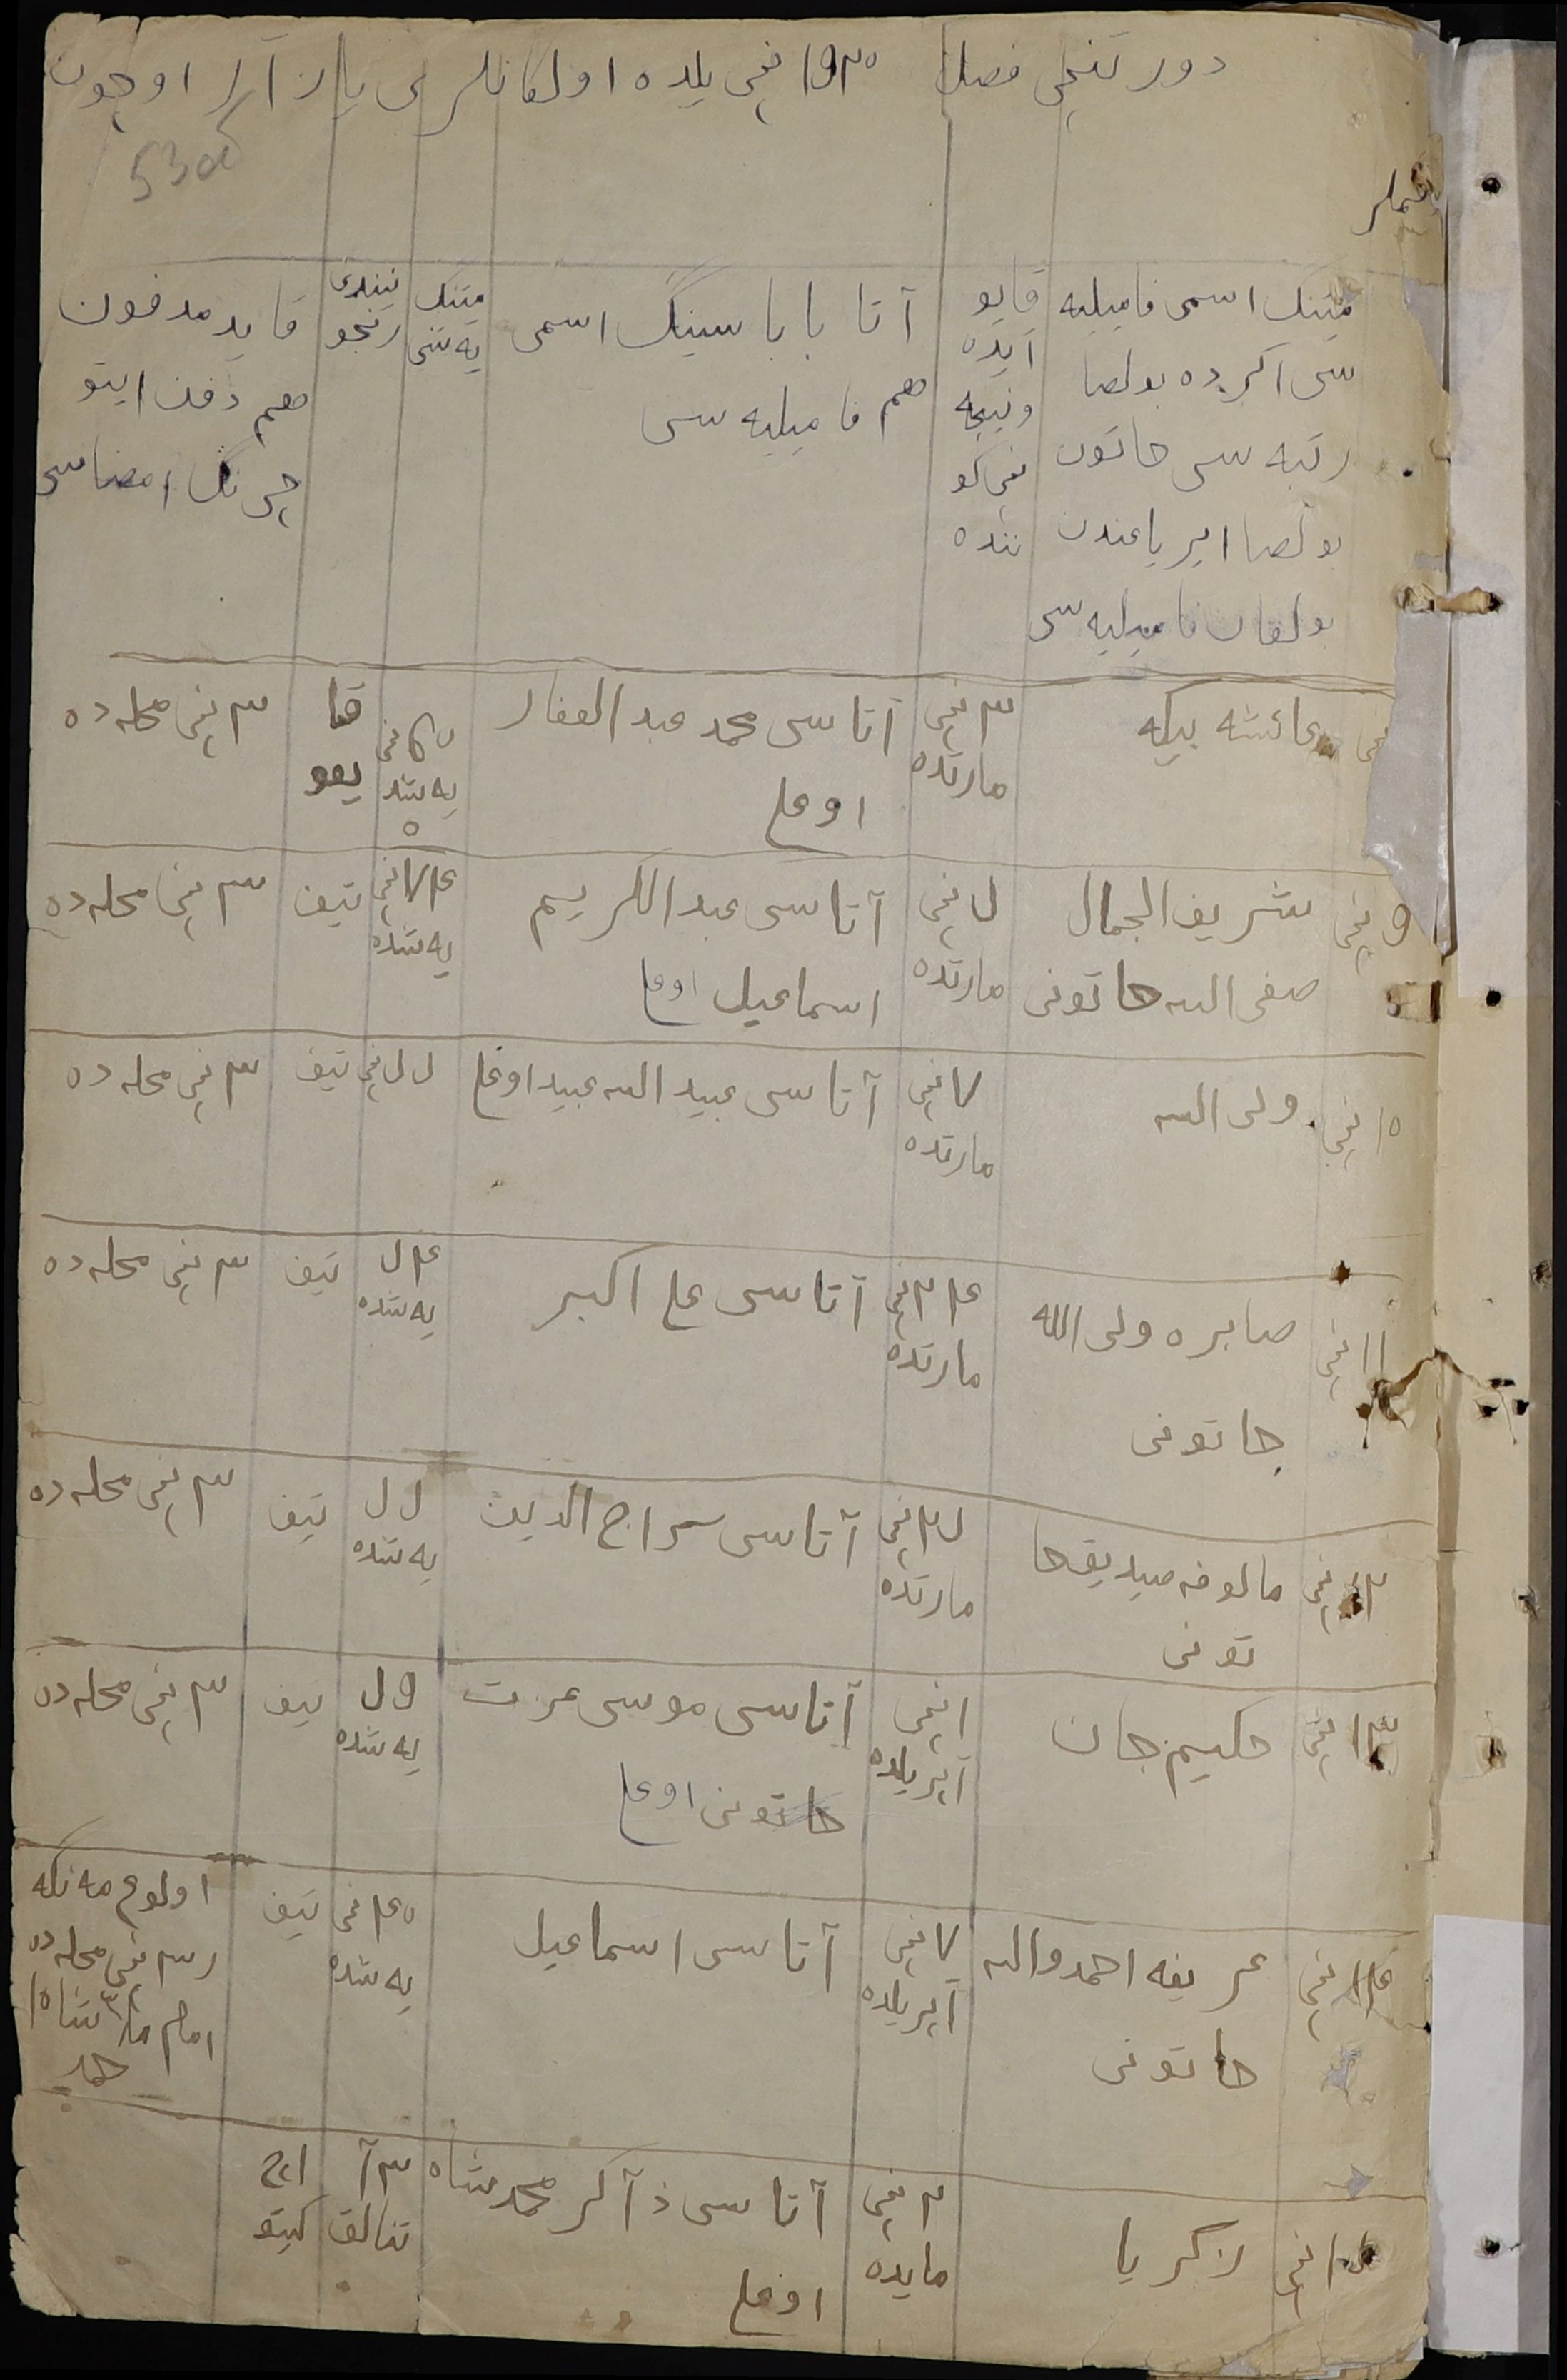 دورتنچی فصل ۱۹۲۰ نچی یلده اولگانلرنی یازآر اوچون
530
نمملر
میتنگ اسمی فامیلیه
سی اگرده بولصا
رتبه سی خاتون
بولصا ایر یاغندن
بولغان فامیلیه سی
قایو
آیده
ونیچه
نچی کو
ننده
آتا باباسینگ اسمی
هم فامیلیه سی
میتنگ
یه شی
نیندی
رنجو
قایدمدفون
هم دفن ایتو
چی ننگ امضاسی
نچی عائشه بیکه
۳ نچی
مارتده
آتاسی محمد عبدالغفار
اوغلی
نچی
یه شده
۳ نچی محلهده
۹ نچی شریف الجمال
صفی الله خاتونی
نچی
مارتده
آتاسی عبدالکریم
اسماعیل اوغلی
نچی
یه شده
تیف
۳ نچی محلهده
۱۰ نچی ولی الله
۷ نچی
مارتده
آتاسی عبیدالله عبید اوغلی
نچی
تیف
۳ نچی محلهده
۱۱ نچی صابره ولی الله
خاتونی
نچی
مارتده
آتاسی علی اکبر
یه شده
تیف
۳ نچی محلهده
۱۲ نچی مالوفه صیدیق خا
تونی
نچی
مارتده
آتاسی سراج الدین
یه شده
تیف
۳ نچی محلهده
۱۳ نچی حکیم جان
۱ نچی
آپریلده
آتاسی موسی عزت
خاتونی اوغلی
یه شده
تیف
۳ نچی محلهده
۱۴ نچی عریفه احمد والله
خاتونی
۷ نچی
آپریلده
آتاسی اسماعیل
نچی
یه شده
تیف
اولوغ مه نگه
ر ۳ نچی محلهده
امام ملا شاه ا
حمد
۱۵ نچی زکریا
۲ نچی
مایده
آتاسی ذآکر محمدشاه
اوغلی
۳ آ
تنالق
اچ
کیتو